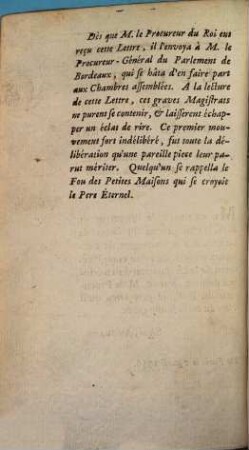 Dès que M. le Procureur du Roi eut
reçu cette Lettre, il l'envoya à M. le
Procureur-Général du Parlement de
Bordeaux, qui se hâta d'en faire part
aux Chambres assemblées. A la lecture
de cette Lettre, ces graves Magistrats
ne purent se contenir, & laisserent échap-
per un éclat de rire. Ce premier mou-
vement fort indélibéré, fut toute la dé-
libération qu'une pareille piece leur pa-
rut mériter. Quelqu'un se rappella le
Fou des Petites Maisons qui se croyoit
le Pere Éternel.